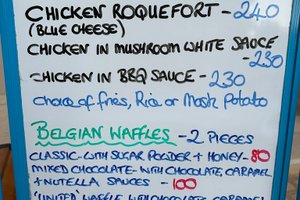 CHICKEN ROQUEFORT - 240
(BLUE CHEESE)
CHICKEN IN MUSHROOM WHITE SAUCE
- 230
CHICKEN IN BBQ SAUCE - 230
choice of fries, Rice or Mash Potato
BELGIAN WAFFLES - 2 PIECES
CLASSIC - WITH SUGAR POWDER + HONEY - 80
MIXED CHOCOLATE - WITH CHOCOLATE, CARAMEL
+ NUTELLA SAUCES - 100
'UNITED' WAFFLE WITH CHOCOLATE CARAMEL